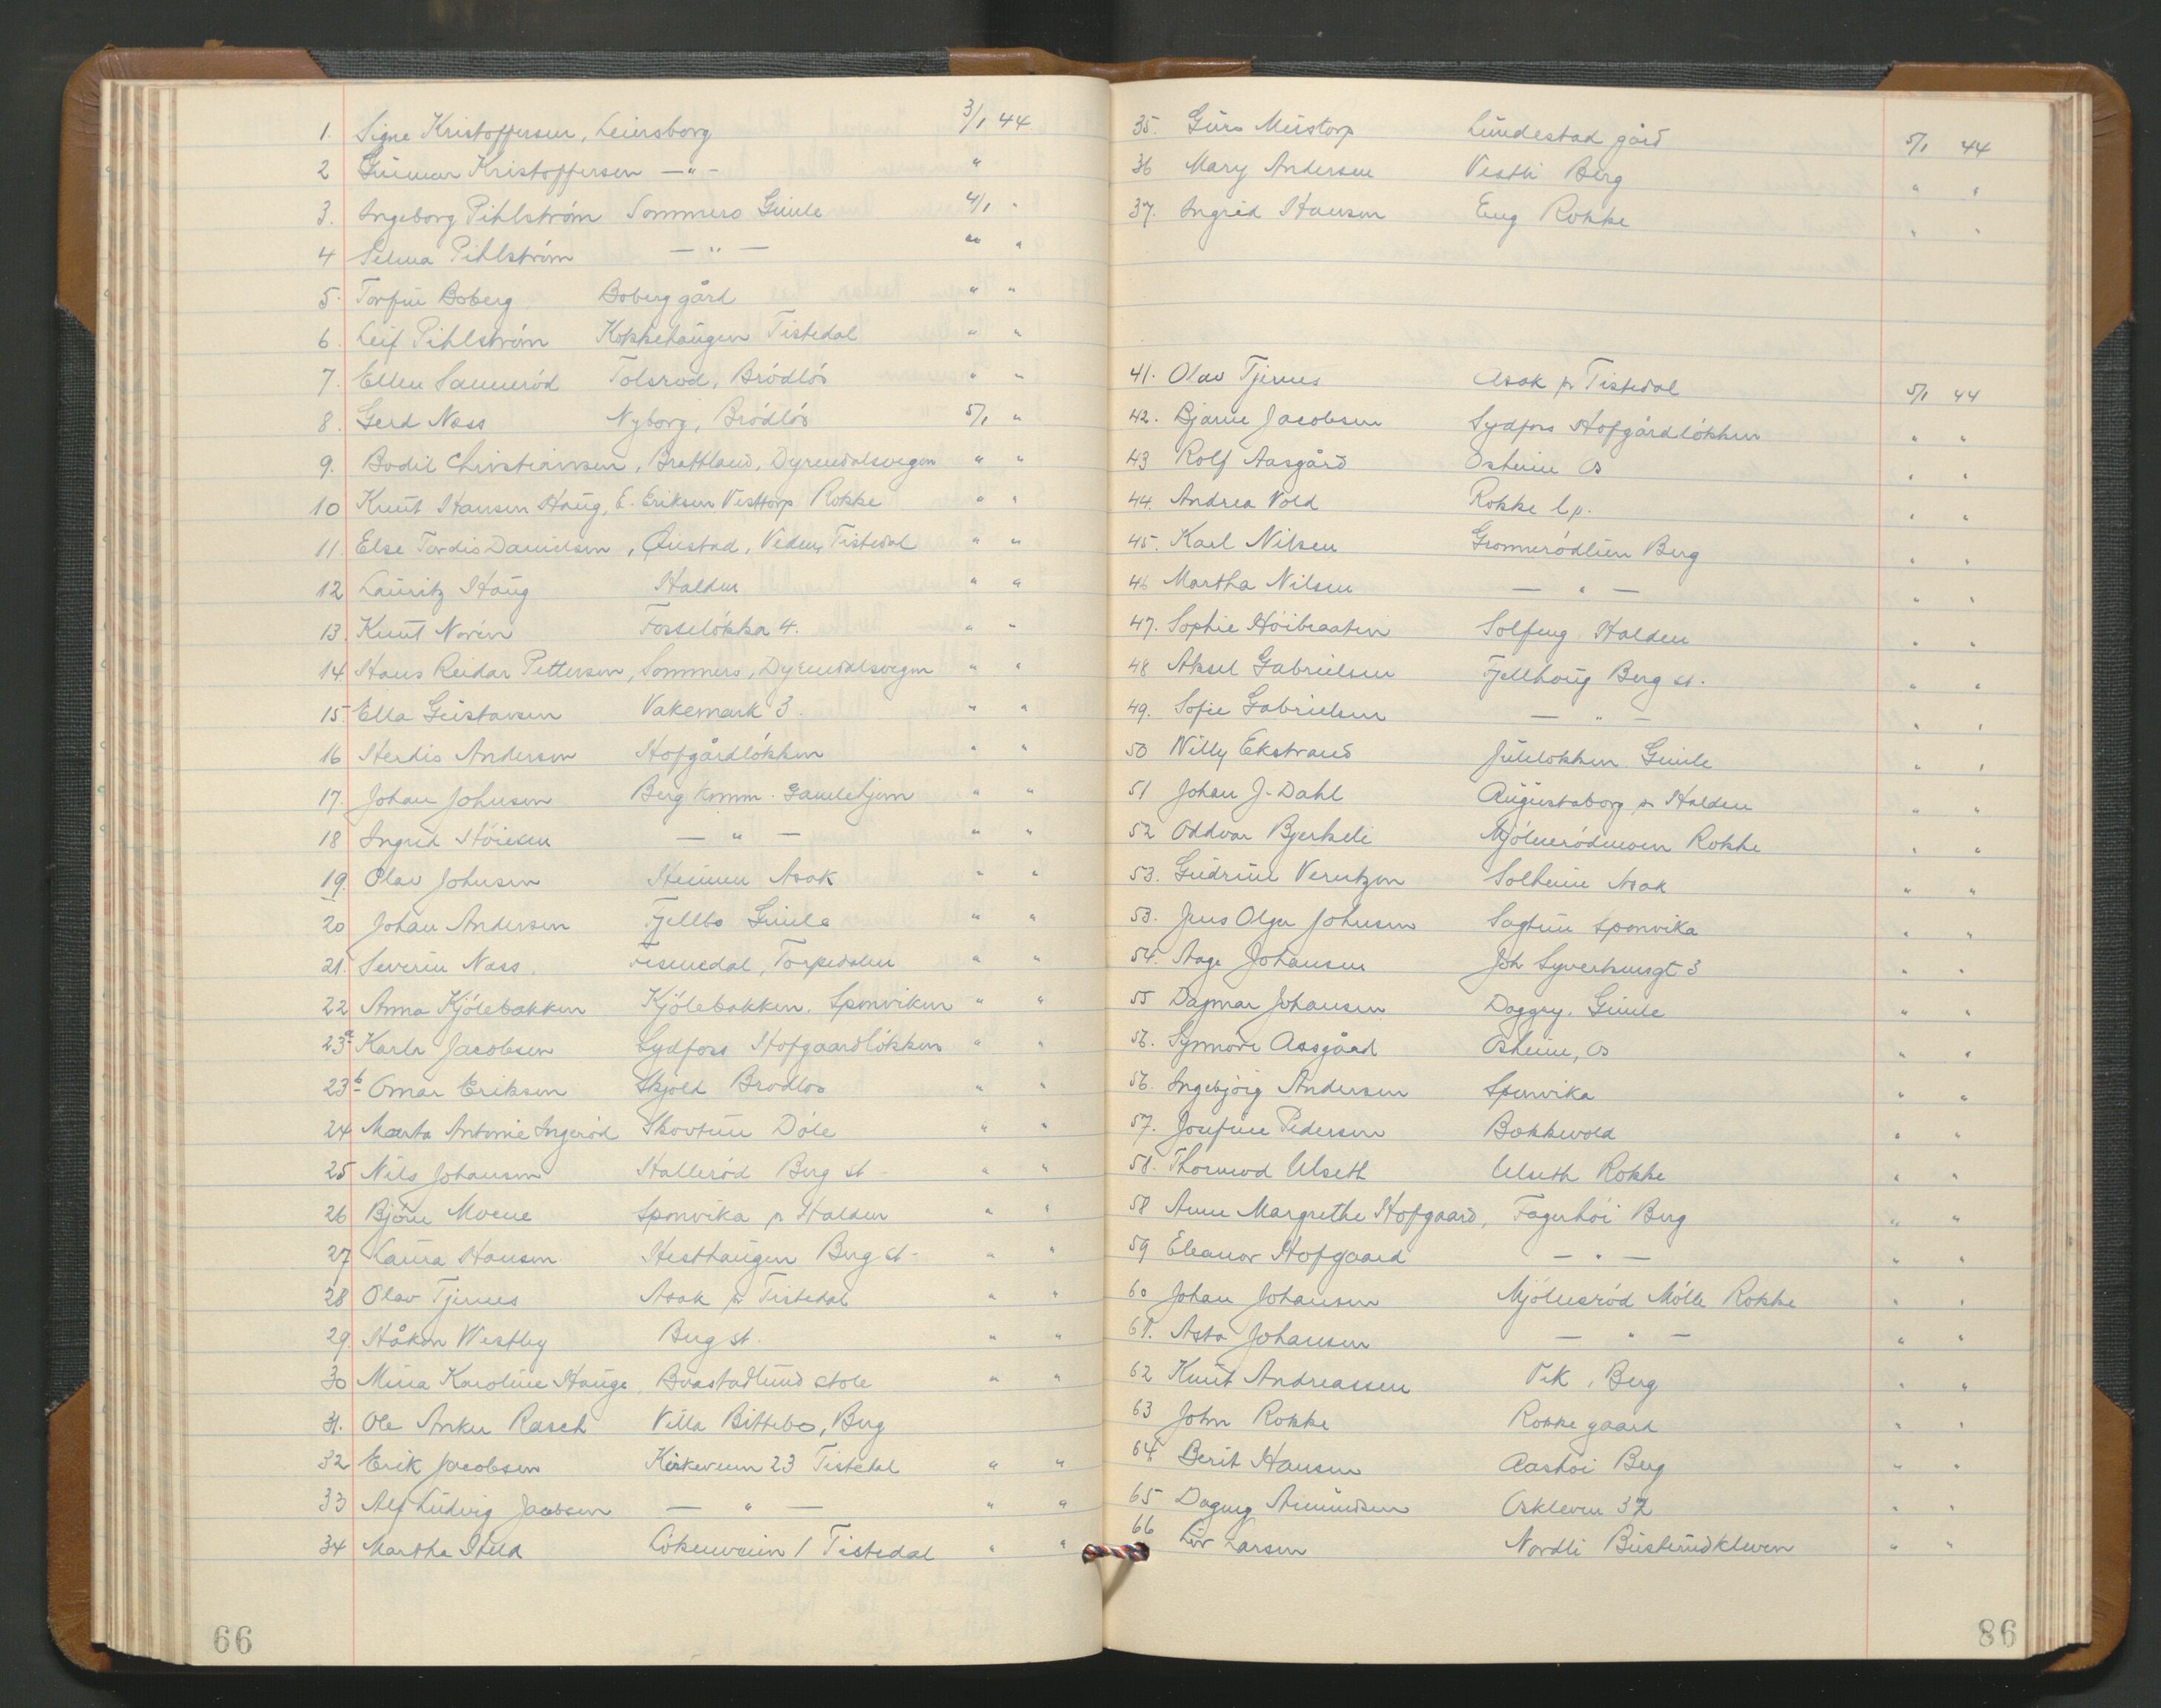 1. Signe Kristoffersen, Leiersborg 3/1 44
2 Gunnar Kristoffersen —"— "
3. Ingeborg Pihlström Sommero Gimle 4/1 "
4 Selma Pihlström —"— " "
5. Torfin Boberg Boberg gård " "
6. Leif Pihlström Kokkehaugen Tistedal " "
7. Ellen Sannerød Tolsrød, Brödlös " "
8. Gerd Næss Nyborg, Brödlös 5/1 "
9. Bodil Christiansen, Brattland, Dyrendalsvegen " "
10 Knut Hansen Haug, E. Eriksen Vesttorp Rokke " "
11. Else Tordis Danielsen, Ørstad, Veden, Tistedal " "
12 Lauritz Haug Halden " "
13. Knut Norén Fosseløkka 4. " "
14. Hans Reidar Pettersen, Sommero, Dyrendalsvegen " "
15. Ella Gustavsen Vakemark 3. " "
16 Herdis Andersen Hofgårdløkken " "
17. Johan Johnsen Berg komm. Gamlehjem " "
18 Ingrid Höiesen —"— " "
19. Olav Johnsen Heimen Asak " "
20 Johan Andersen Fjellbo Gimle " "
21. Severin Næss. Fismedal, Torpedalen " "
22 Anna Kjølebakken Kjølebakken. Sponviken " "
23a Karln Jacobsen Sydfoss Hofgaardløkken " "
23b Omar Eriksen Skjold Brødløs " "
24 Marta Antonie Ingeröd Skovtun Döle " "
25 Nils Johansen Halleröd Berg st " "
26 Björn Moene Sponvika pr Halden " "
27 Laura Hansen Hesthaugen Berg st. " "
28 Olav Tjernes Asak pr Tistedal " "
29. Håkon Westby Berg st. " "
30 Mina Karoline Hauge, Braatadlund skole " "
31. Ole Anker Rasch Villa Bittebo, Berg
32 Erik Jacobsen Kirkeveien 23 Tistedal " "
33 Alf Ludvig Jacobsen —"— " "
34 Martha Hild Lökenveien 1 Tistedal " "
66
35. Guro Mustorp Lundestad gård 5/1 44
36 Mary Andersen Vestli Berg " "
37. Ingrid Hansen Eng Rokke " "
41. Olav Tjernes Asak pr Tistedal 5/1 44
42. Bjarne Jacobsen Sydfoss Hofgårdløkken " "
43 Rolf Aasgård Osheim Os " "
44. Andrea Vold Rokke l.p. " "
45. Karl Nilsen Grønnerödlien Berg " "
46 Martha Nilsen —"— " "
47. Sophie Höibraaten Solfeng Halden " "
48 Aksel Gabrielsen Fjellhöug Berg st. " "
49. Sofie Gabrielsen —"— " "
50 Nilly Ekstrand Juleløkken Gimle " "
51 Johan J. Dahl Augustaborg pr Halden " "
52 Oddvar Bjerkeli Mjölnerödmoen Rokke " "
53. Gudrun Verntzen Solheim Asak " "
53. Jens Olger Johnsen Sagtun Sponvika " "
54. Aage Johansen Joh Syverhuusgt 3 " "
55 Dagmar Johansen Daggry. Gimle " "
56. Synnöve Aasgård Osheim, Os " "
56. Ingebjörg Andersen Sponvika " "
57. Josefine Pedersen Bakkevold " "
58. Thormod Ulseth Ulseth Rokke " "
58 Anne Margrethe Hofgaard, Fagerhöi Berg " "
59 Eleanor Hofgaard —"— " "
60 Johan Johansen Mjölneröd Mölle Rokke " "
61. Asta Johansen —"— " "
62 Knut Andreassen Vik, Berg " "
63 John Rokke Rokke gaard " "
64 Berit Hansen Aashöi Berg " "
65 Dagny Amundsen Oskleven 37 " "
66 Liv Larsen Nordli Busterudkleven " "
86